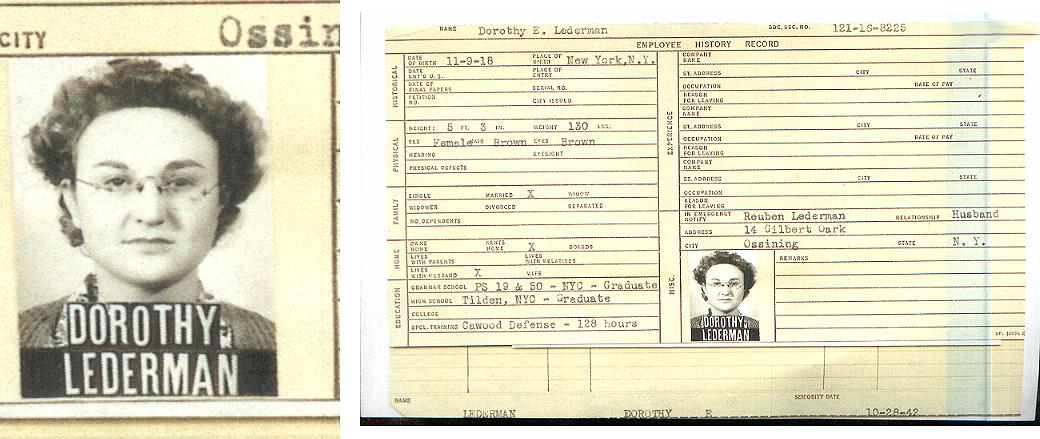 CITY Ossin
DOROTHY
LEDERMAN
NAME Dorothy E. Lederman SOC. SEC. NO. 121-16-8225
EMPLOYEE HISTORY RECORD
HISTORICAL
DATE OF BIRTH 11-9-18 PLACE OF BIRTH New York, N.Y.
DATE ENT'D U.S. PLACE OF ENTRY
DATE OF FINAL PAPERS SERIAL NO.
PETITION NO. CITY ISSUED
PHYSICAL
HEIGHT: 5 FT. 3 IN. WEIGHT 130 LBS.
SEX Female HAIR Brown EYES Brown
HEARING EYESIGHT
PHYSICAL DEFECTS
FAMILY
SINGLE MARRIED X WIDOW
WIDOWER DIVORCED SEPARATED
NO. DEPENDENTS
HOME
OWNS HOME RENTS HOME X BOARDS
LIVES WITH PARENTS LIVES WITH RELATIVES
LIVES WITH HUSBAND X WIFE
EDUCATION
GRAMMAR SCHOOL PS 19 & 50 - NYC - Graduate
HIGH SCHOOL Tilden, NYC - Graduate
COLLEGE
SPCL. TRAINING Cawood Defense - 128 hours
EXPERIENCE
COMPANY NAME
ST. ADDRESS CITY STATE
OCCUPATION RATE OF PAY
REASON FOR LEAVING
COMPANY NAME
ST. ADDRESS CITY STATE
OCCUPATION RATE OF PAY
REASON FOR LEAVING
COMPANY NAME
ST. ADDRESS CITY STATE
OCCUPATION
REASON FOR LEAVING
MISC.
IN EMERGENCY NOTIFY Reuben Lederman RELATIONSHIP Husband
ADDRESS 14 Gilbert Oark
CITY Ossining STATE N. Y.
REMARKS
DOROTHY
LEDERMAN
SENIORITY DATE
NAME LEDERMAN DOROTHY E 10-28-42